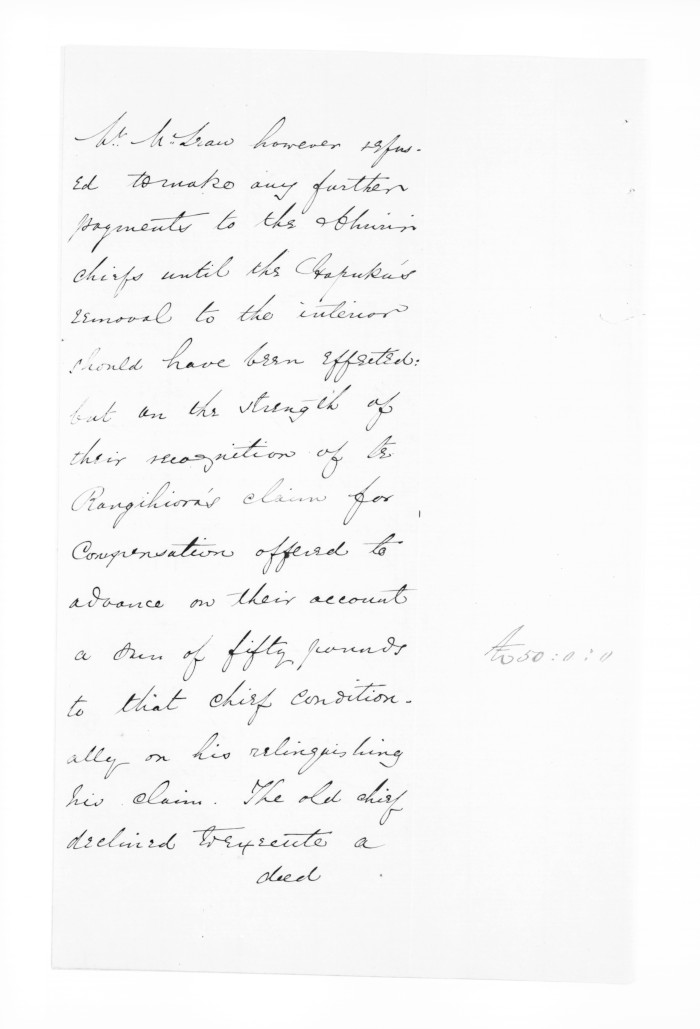 Mr. McLean however refus-
ed to make any further
payments to the Ahuriri
chiefs until the Hapuku's
removal to the interior
should have been effected:
but on the strength of
their recognition of te
Rangihiroa's claim for
Compensation offered to
advance on their account
a sum of fifty pounds
50:0:0
to that chief condition-
ally on his relinquishing
his claim. The old chief
declined to execute a
deed